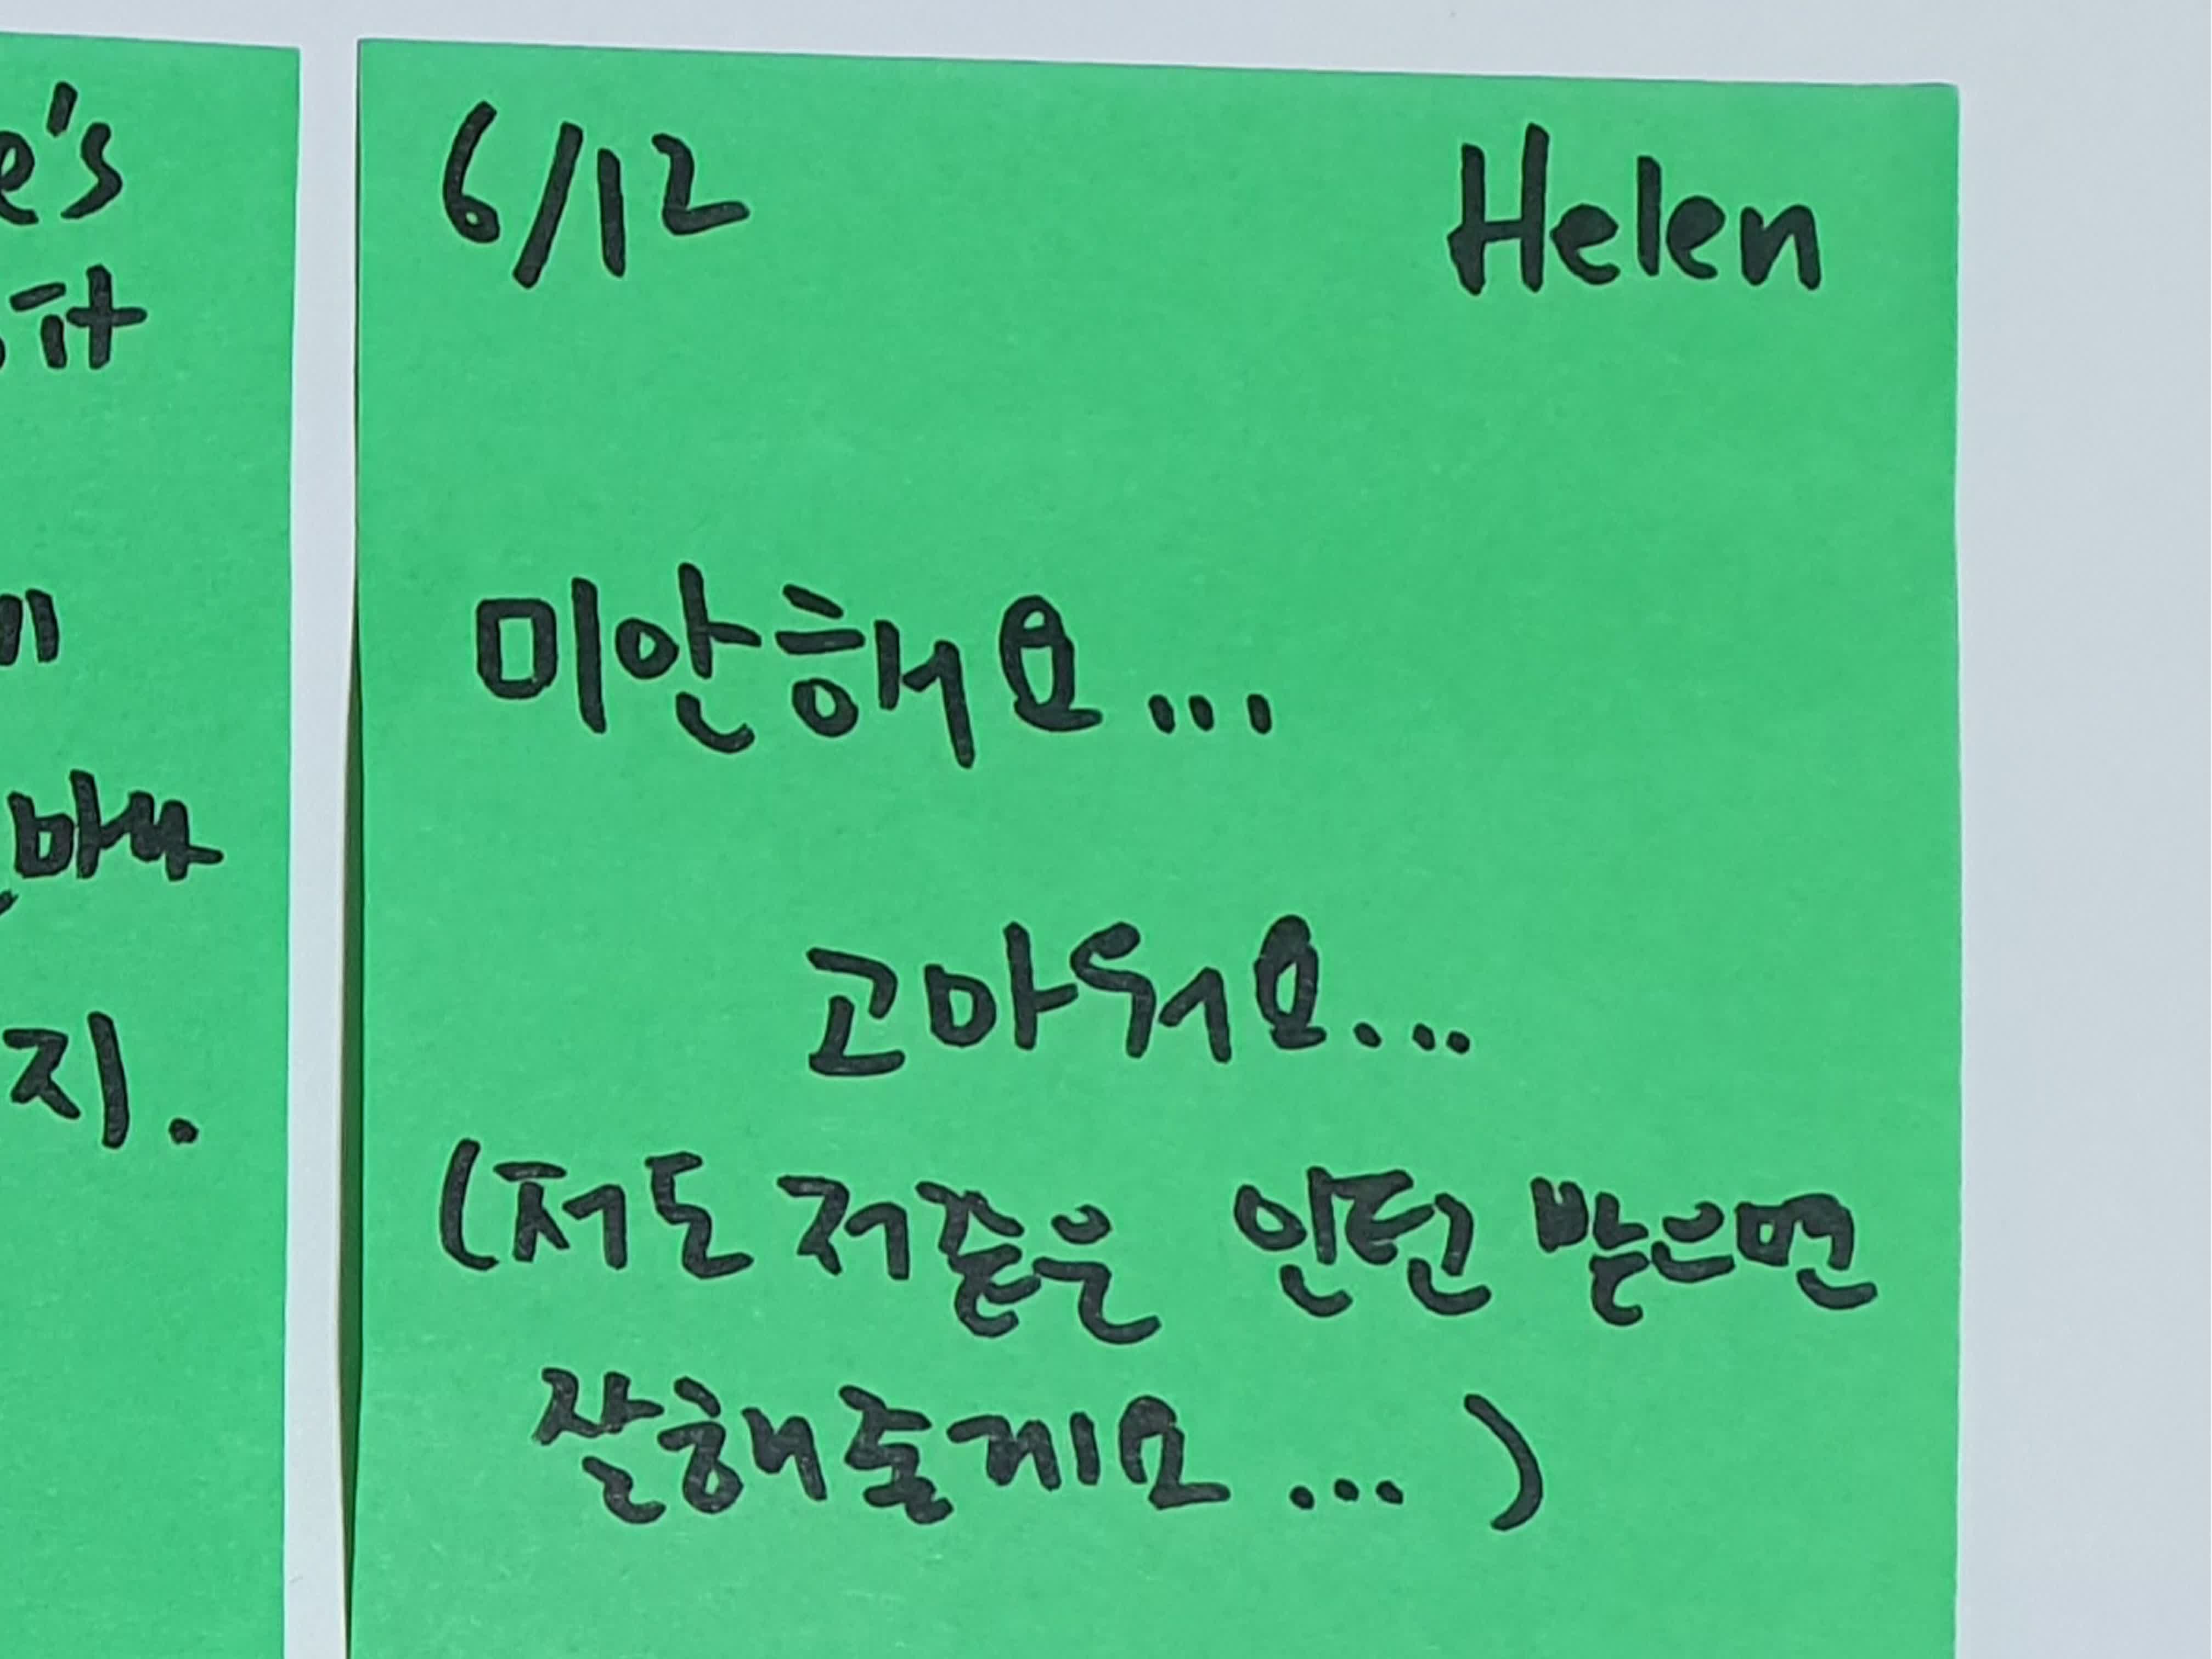 e's
it
6/12 Helen
미안해요...
고마워요...
지.
(저도 저좀은 인턴 받으면
잘해줄게요...)